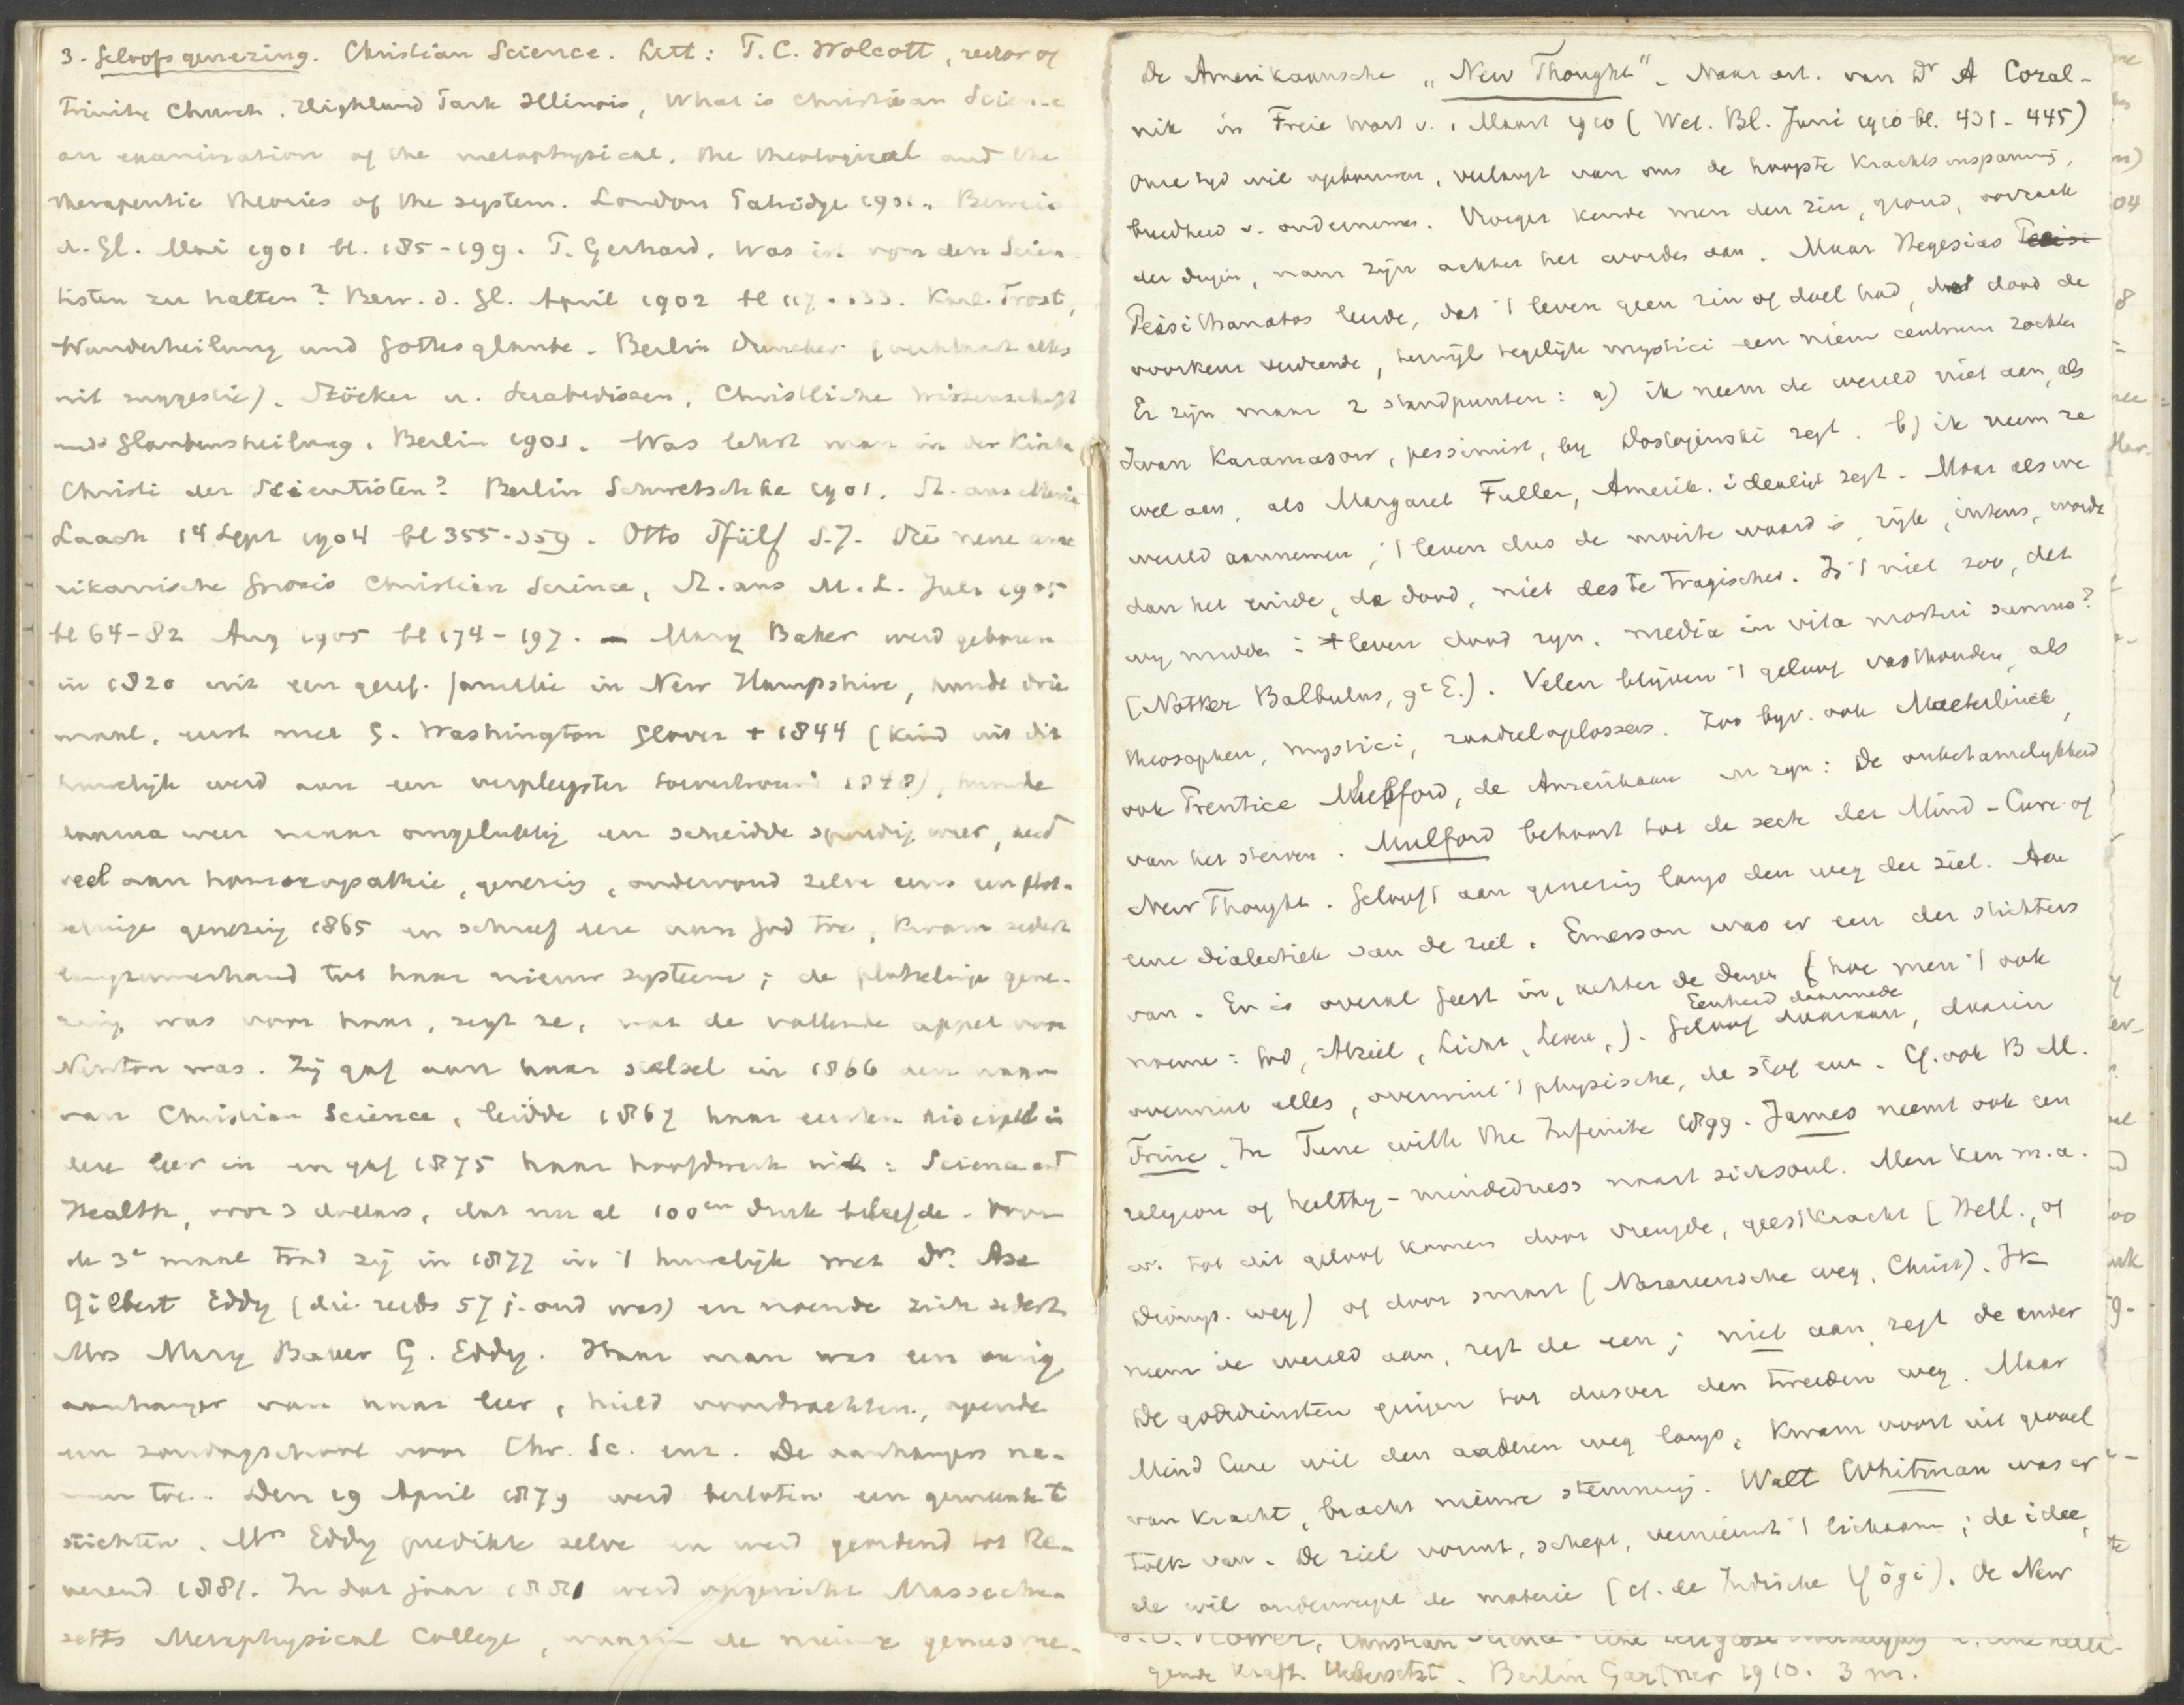 3. Geloofsgenezing. Christian Science. Litt: P.C. Wolcott, rector of
Trinity Church, Highland Park Illinois, What is Christian Science
an examination of the metaphysical, the theological and the
therapeutic theories of the system. London Patridge 1901. Beweis
d. Gl. Mai 1901 bl. 185-199. P. Gerhard, Was ist von den Scien-
tisten zu halten? Bew. d. Gl. April 1902 bl 117-133. Karl Trost,
Wunderheilung und Gottesglaube. Berlin Duncker (verklaart alles
uit suggestie). Stöcker u. Christliche Wissenschaft
und Glaubensheilung, Berlin 1901. Was lehrt man in der Kirche
Christi der Scientisten? Berlin Schwetschke 1901. St. aus Maria
Laach 14 Sept 1904 bl 355-359. Otto Pfülf S.J. Die neue ame
rikanische Gnosis Christian Science, St. aus M.L. Juli 1905
bl 64-82 Aug 1905 bl 174-197. — Mary Baker werd geboren
in 1820 uit een geref. familie in New Hampshire, huwde drie
maal, eerst met G. Washington Glover + 1844 (kind uit dit
huwelijk werd aan een verpleegster toevertrouwd 1848), huwde
daarna weer maar ongelukkig en scheidde spoedig weer, deed
veel aan homoeopathie, genezing, ondervond zelve eens een plot-
selinge genezing 1865 en schreef deze aan God toe, kwam sedert
langzamerhand tot haar nieuw systeem; de plotselinge gene-
zing was voor haar, zegt ze, wat de vallende appel voor
Newton was. Zij gaf aan haar stelsel in 1866 den naam
van Christian Science, leidde 1867 haar eersten discipel in
deze leer in en gaf 1875 haar hoofdwerk uit: Science and
Health, voor 3 dollars, dat nu al 100en druk beleefde. Voor
de 3e maal trad zij in 1877 in 't huwelijk met Dr. Asa
Gilbert Eddy (die reeds 57 j. oud was) en noemde zich sedert
Mrs Mary Baker G. Eddy. Haar man was een vurig
aanhanger van haar leer, hield voordrachten, opende
een zondagschool voor Chr. Sc. enz. De aanhangers na-
men toe. Den 19 April 1879 werd besloten een gemeente te
stichten. Mrs Eddy predikte zelve en werd geordend tot Re-
verend 1881. In dat jaar 1881 werd opgericht Massachu-
setts Metaphysical College, waarin de nieuwe geneeswe-
De Amerikaansche „New Thought". Naar art. van Dr A Coral-
nik in Freie Wort v. 1 Maart 1910 (Wet. Bl. Juni 1910 bl. 431-445)
Onze tijd wil opbouwen, verlangt van ons de hoogste krachtsinspanning,
breedheid v. ondernemen. Vroeger kende men den zin, grond, oorzaak
der dingen, nam zijn achter het worden aan. Maar Hegesias Peisi
Peisithanatos leerde, dat 't leven geen zin of doel had, dood de
voorkeur verdiende, terwijl tegelijk mystici een nieuw centrum zochten
Er zijn maar 2 standpunten: a) ik neem de wereld niet aan, als
Iwan Karamasow, pessimist, bij Dostojewski zegt. b) ik neem ze
wel aan, als Margaret Fuller, Amerik. idealist zegt. Maar als we
wereld aannemen, 't leven dus de moeite waard is, rijk, intens, wordt
dan het einde, de dood, niet des te tragischer. Is 't niet zoo, dat
wij midden i/h leven dood zijn, media in vita mortui sumus?
(Notker Balbulus, 9e E.). Velen blijven 't geloof vasthouden, als
theosophen, mystici, raadseloplossers. Zoo bijv. ook Maeterlinck,
ook Prentice Mulford, de Amerikaan in zijn: De onbetamelijkheid
van het sterven. Mulford behoort tot de secte der Mind-Cure of
New Thought. Gelooft aan genezing langs den weg der ziel. Aan
eene dialectiek van de ziel. Emerson was er een der stichters
van. Er is overal geest in, achter de dingen (hoe men 't ook
noeme: God, Alziel, Licht, Leven,). Geloof daaraan, daarin
Eenheid daarmede
overwint alles, overwint 't physische, de stof enz. Cf. ook B M.
Trine, In Tune with the Infinite 1899. James neemt ook een
religion of healthy-mindedness naast sicksoul. Men kan m.a.
w. tot dit geloof komen door vreugde, geestkracht (Hell., of
Dionys. weg) of door smart (Nazareensche weg, Christ). Ik
neem de wereld aan, zegt de een; niet aan, zegt de ander
De godsdiensten gingen tot dusver den tweeden weg. Maar
Mind Cure wil den anderen weg langs, kwam voort uit gevoel
van kracht, bracht nieuwe stemming. Walt Whitman was er
tolk van. De ziel vormt, schept, vernieuwt 't lichaam; de idee,
de wil onderwerpt de materie (cf. de Indische Yôgi). De New
gende Kraft. Uebersetzt. Berlin Gartner 1910. 3 m.